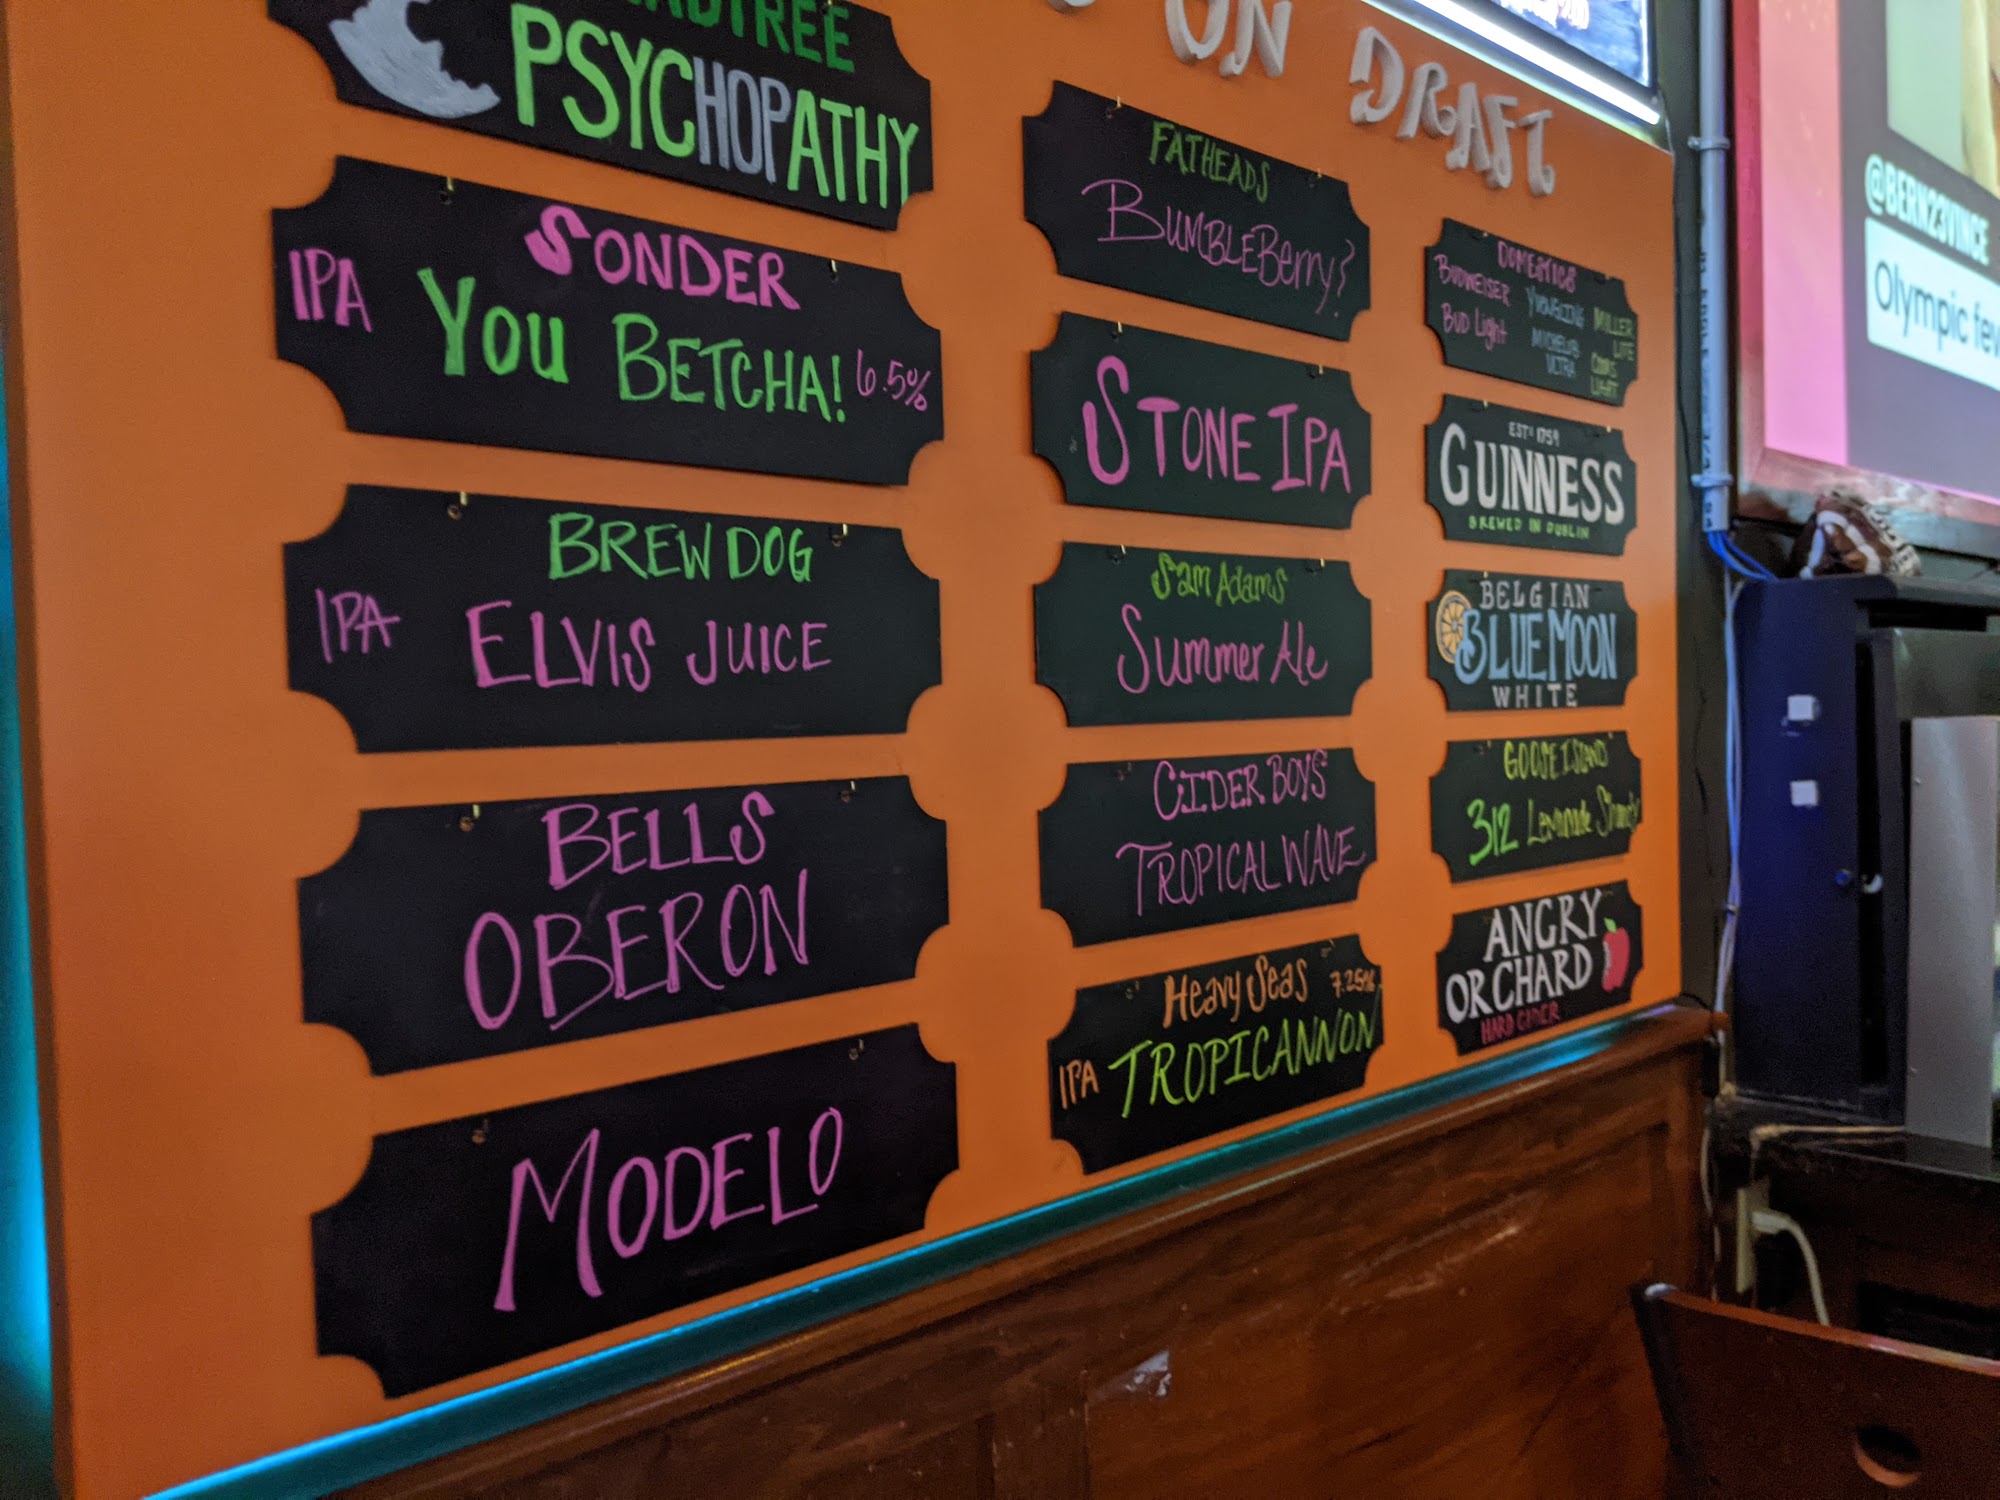 PSYCHOPATHY
SONDER
IPA
You BETCHA!
6.5%
BREWDOG
IPA
ELVIS JUICE
BELLS
OBERON
MODELO
ON DRAFT
FATHEADS
BUMBLEBerry?
STONE IPA
Sam Adams
Summer Ale
CIDER BOYS
TROPICAL WAVE
Heavy Seas
7.25%
IPA
TROPICANNON
DOMESTICS
BUDWEISER
Bud Light
YUENGLING
MICHELOB
ULTRA
MILLER
LITE
COORS
LIGHT
EST: 1759
GUINNESS
BREWED IN DUBLIN
BELGIAN
BLUE MOON
WHITE
GOOSE ISLAND
312 Lemonade Shandy
ANGRY
ORCHARD
HARD CIDER
@BERK23VINCE
Olympic